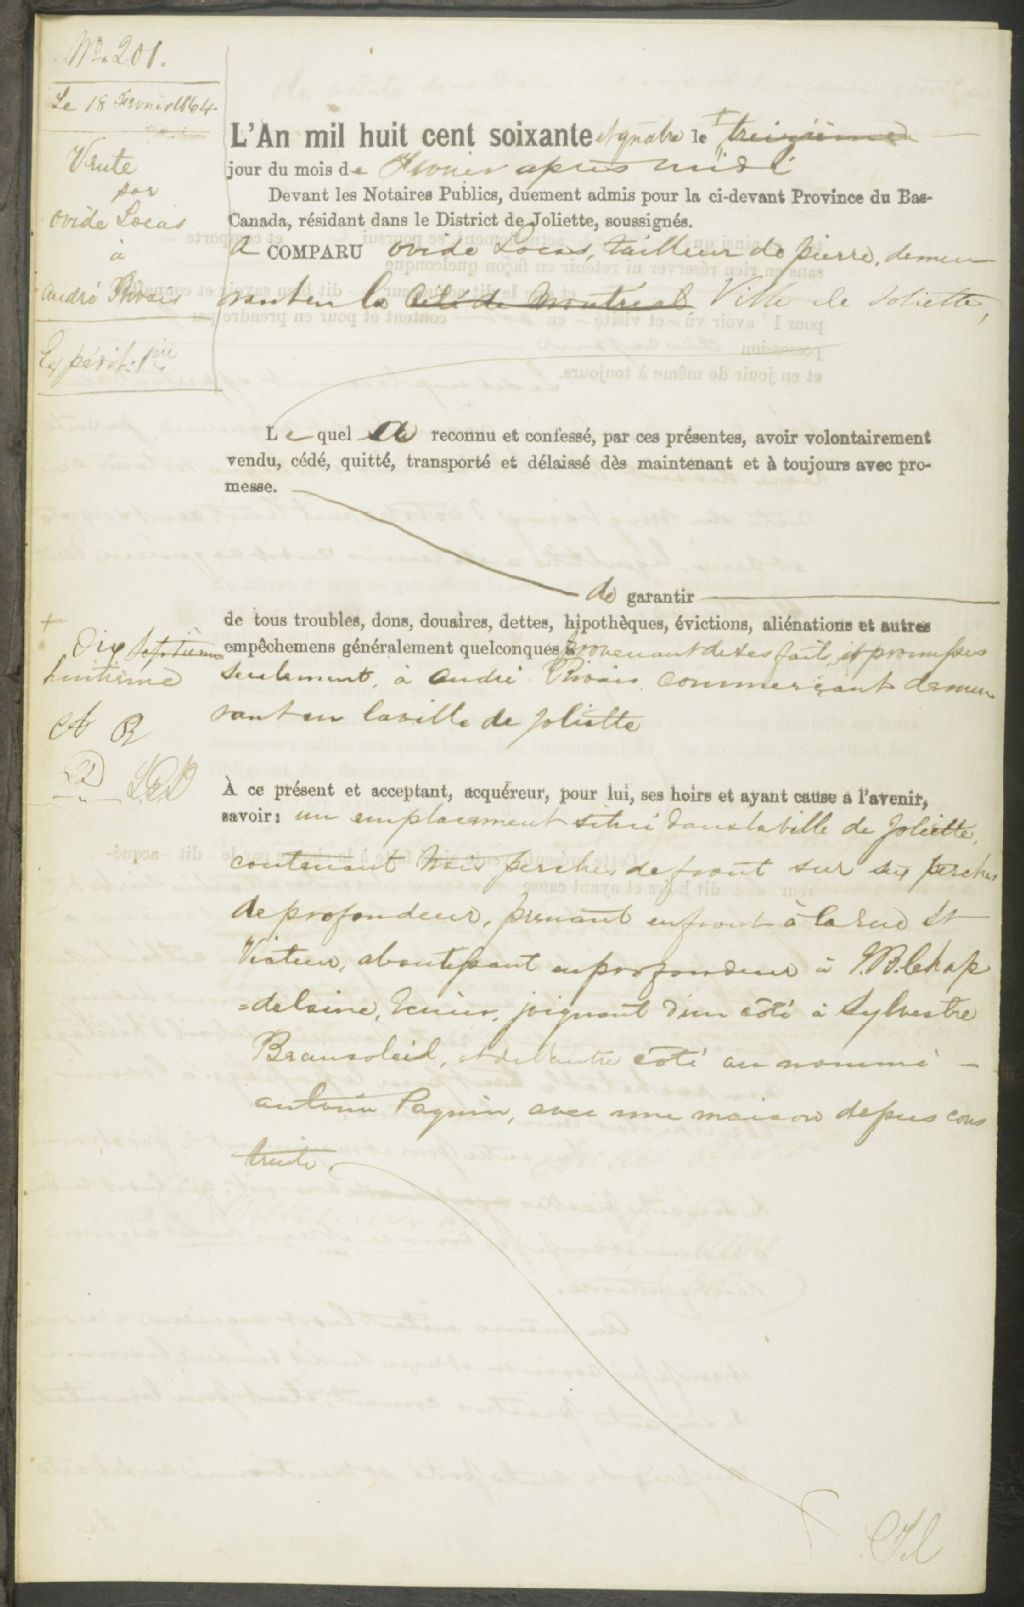 No. 201.
Le 18 Fevrier 1864
Vente
par
Ovide Locas
à
André Rivais
Expédit: 1ère
L'An mil huit cent soixante et quatre le + treizième
jour du mois de Fevrier après midi
Devant les Notaires Publics, duement admis pour la ci-devant Province du Bas-
Canada, résidant dans le District de Joliette, soussignés.
A COMPARU Ovide Locas, tailleur de pierre, demeu
rant en la Cité de Montréal, Ville de Joliette,
Le quel a reconnu et confessé, par ces présentes, avoir volontairement
vendu, cédé, quitté, transporté et délaissé dès maintenant et à toujours avec pro-
messe.
de garantir
de tous troubles, dons, douaires, dettes, hipothèques, évictions, aliénations et autres
empêchemens généralement quelconques provenant de ses faits et promesses
seulement, à André Rivais commerçant demeu
rant en la ville de Joliette
+
Dix septième
huitième
À ce présent et acceptant, acquéreur, pour lui, ses hoirs et ayant cause a l'avenir,
savoir: un emplacement situé dans la ville de Joliette,
contenant trois perches de front sur six perches
de profondeur, prenant en front à la rue St
Viateur, aboutissant en profondeur à J. B. Chap
=delaine, Ecuier, joignant d'un côté à Sylvestre
Beausoleil, et de l'autre côté au nommé
Antoine Paquin, avec une maison dessus cons
truite.